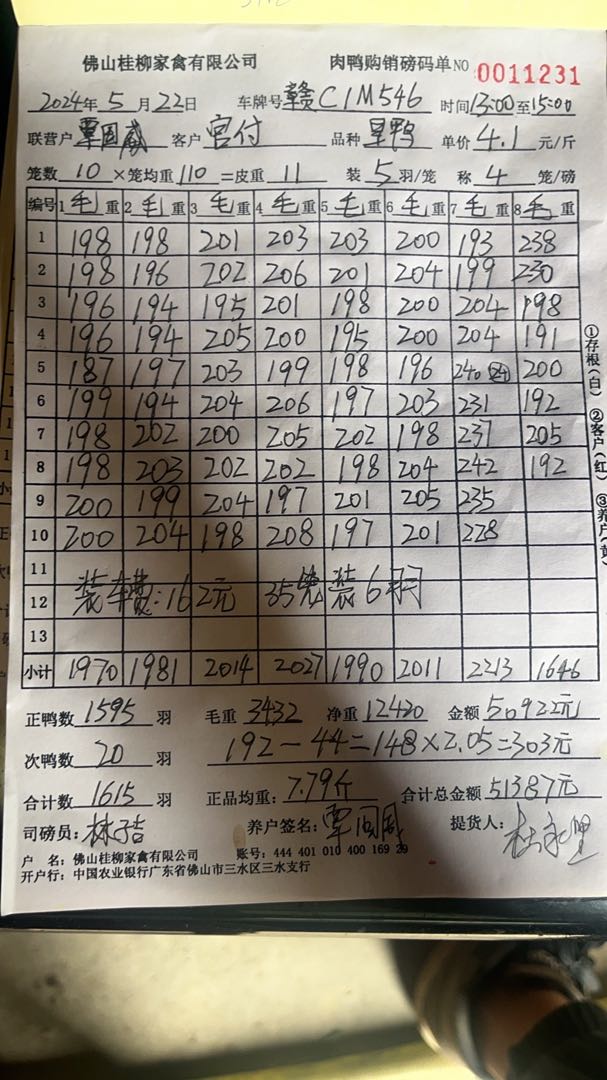 佛山桂柳家禽有限公司 肉鸭购销磅码单NO 0011231
2024年 5 月 22日 车牌号 赣C1M546 时间13:00至15:00
联营户 覃国威 客户 宫付 品种 星鸭 单价 4.1 元/斤
笼数 10 ×笼均重 110 =皮重 11 装 5 羽/笼 称 4 笼/磅
编号 1毛重 2毛重 3毛重 4毛重 5毛重 6毛重 7毛重 8毛重
1 198 198 201 203 203 200 193 238
2 198 196 202 206 201 204 199 230
3 196 194 195 201 198 200 204 198
4 196 194 205 200 195 200 204 191
5 187 197 203 199 198 196 240 200
6 199 194 204 206 197 203 231 192
7 198 202 200 205 202 198 237 205
8 198 203 202 202 198 204 242 192
9 200 199 204 197 201 205 235
10 200 204 198 208 197 201 228
11
12 装车费:162元 35笼装6羽
13
小计 1970 1981 2014 2027 1990 2011 2213 1646
正鸭数 1595 羽 毛重 3432 净重 12420 金额 50922元
次鸭数 20 羽 192-44=148×2.05=303元
合计数 1615 羽 正品均重: 7.79斤 合计总金额 51387元
司磅员: 林子吉 养户签名: 覃国威 提货人:
户 名: 佛山桂柳家禽有限公司 账号: 444 401 010 400 169 29
开户行: 中国农业银行广东省佛山市三水区三水支行
①存根(白) ②客户(红) ③养户(黄)